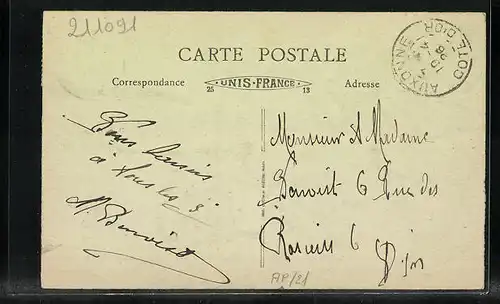 211091
CARTE POSTALE
Correspondance
UNIS-FRANCE
25 13
Adresse
AUXONNE
CÔTE D'OR
Bons baisers
à tous les 3
M. Benoist
Monsieur & Madame
Benoist 6 Rue des
Rosiers 6
Dijon
AP/21